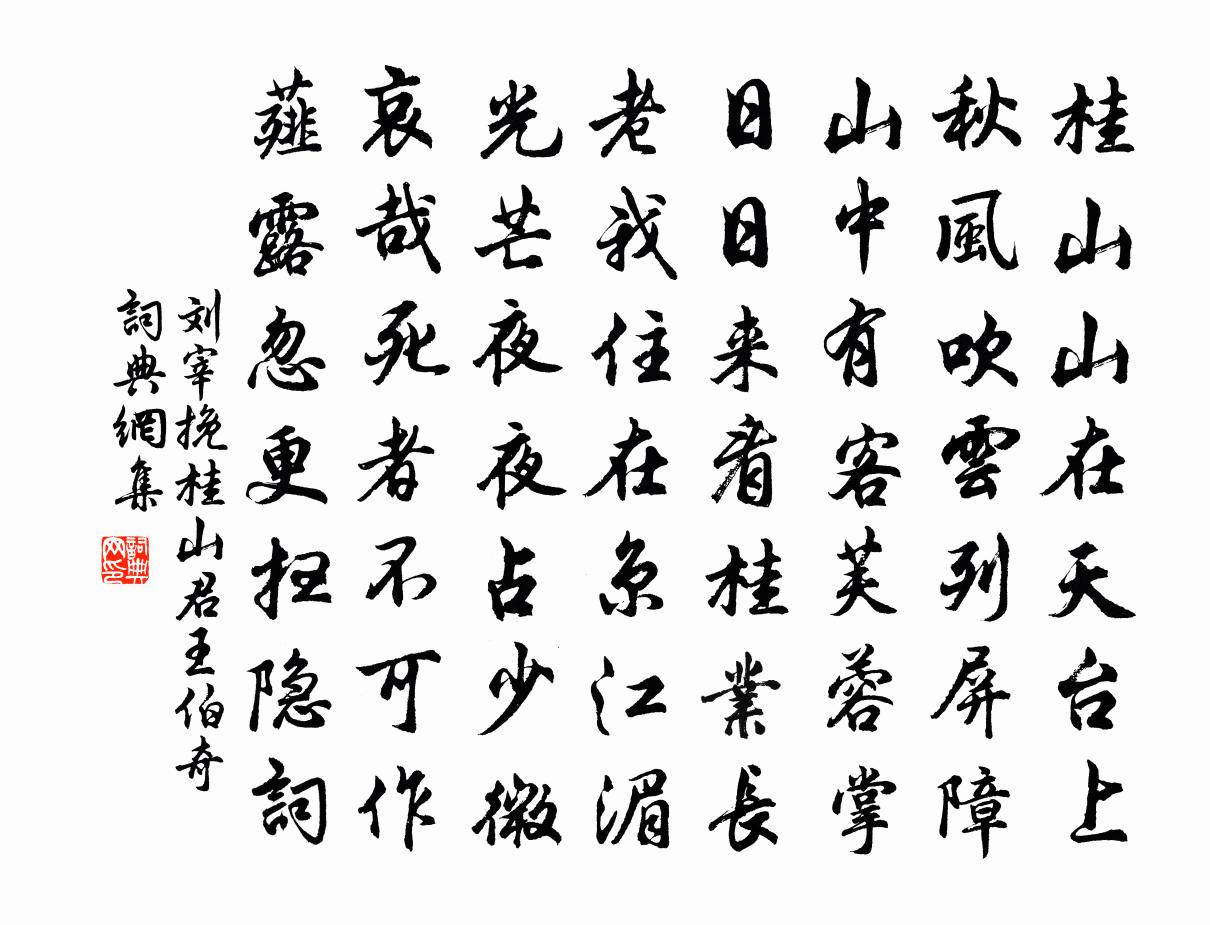 桂山山在天台上
秋風吹雲列屏障
山中有客芙蓉掌
日日来看桂業長
老我住在京江湄
光芒夜夜占少微
哀哉死者不可作
薤露忽更抂隐詞
刘宰挽桂山君王伯奇
詞典網集
詞典网印